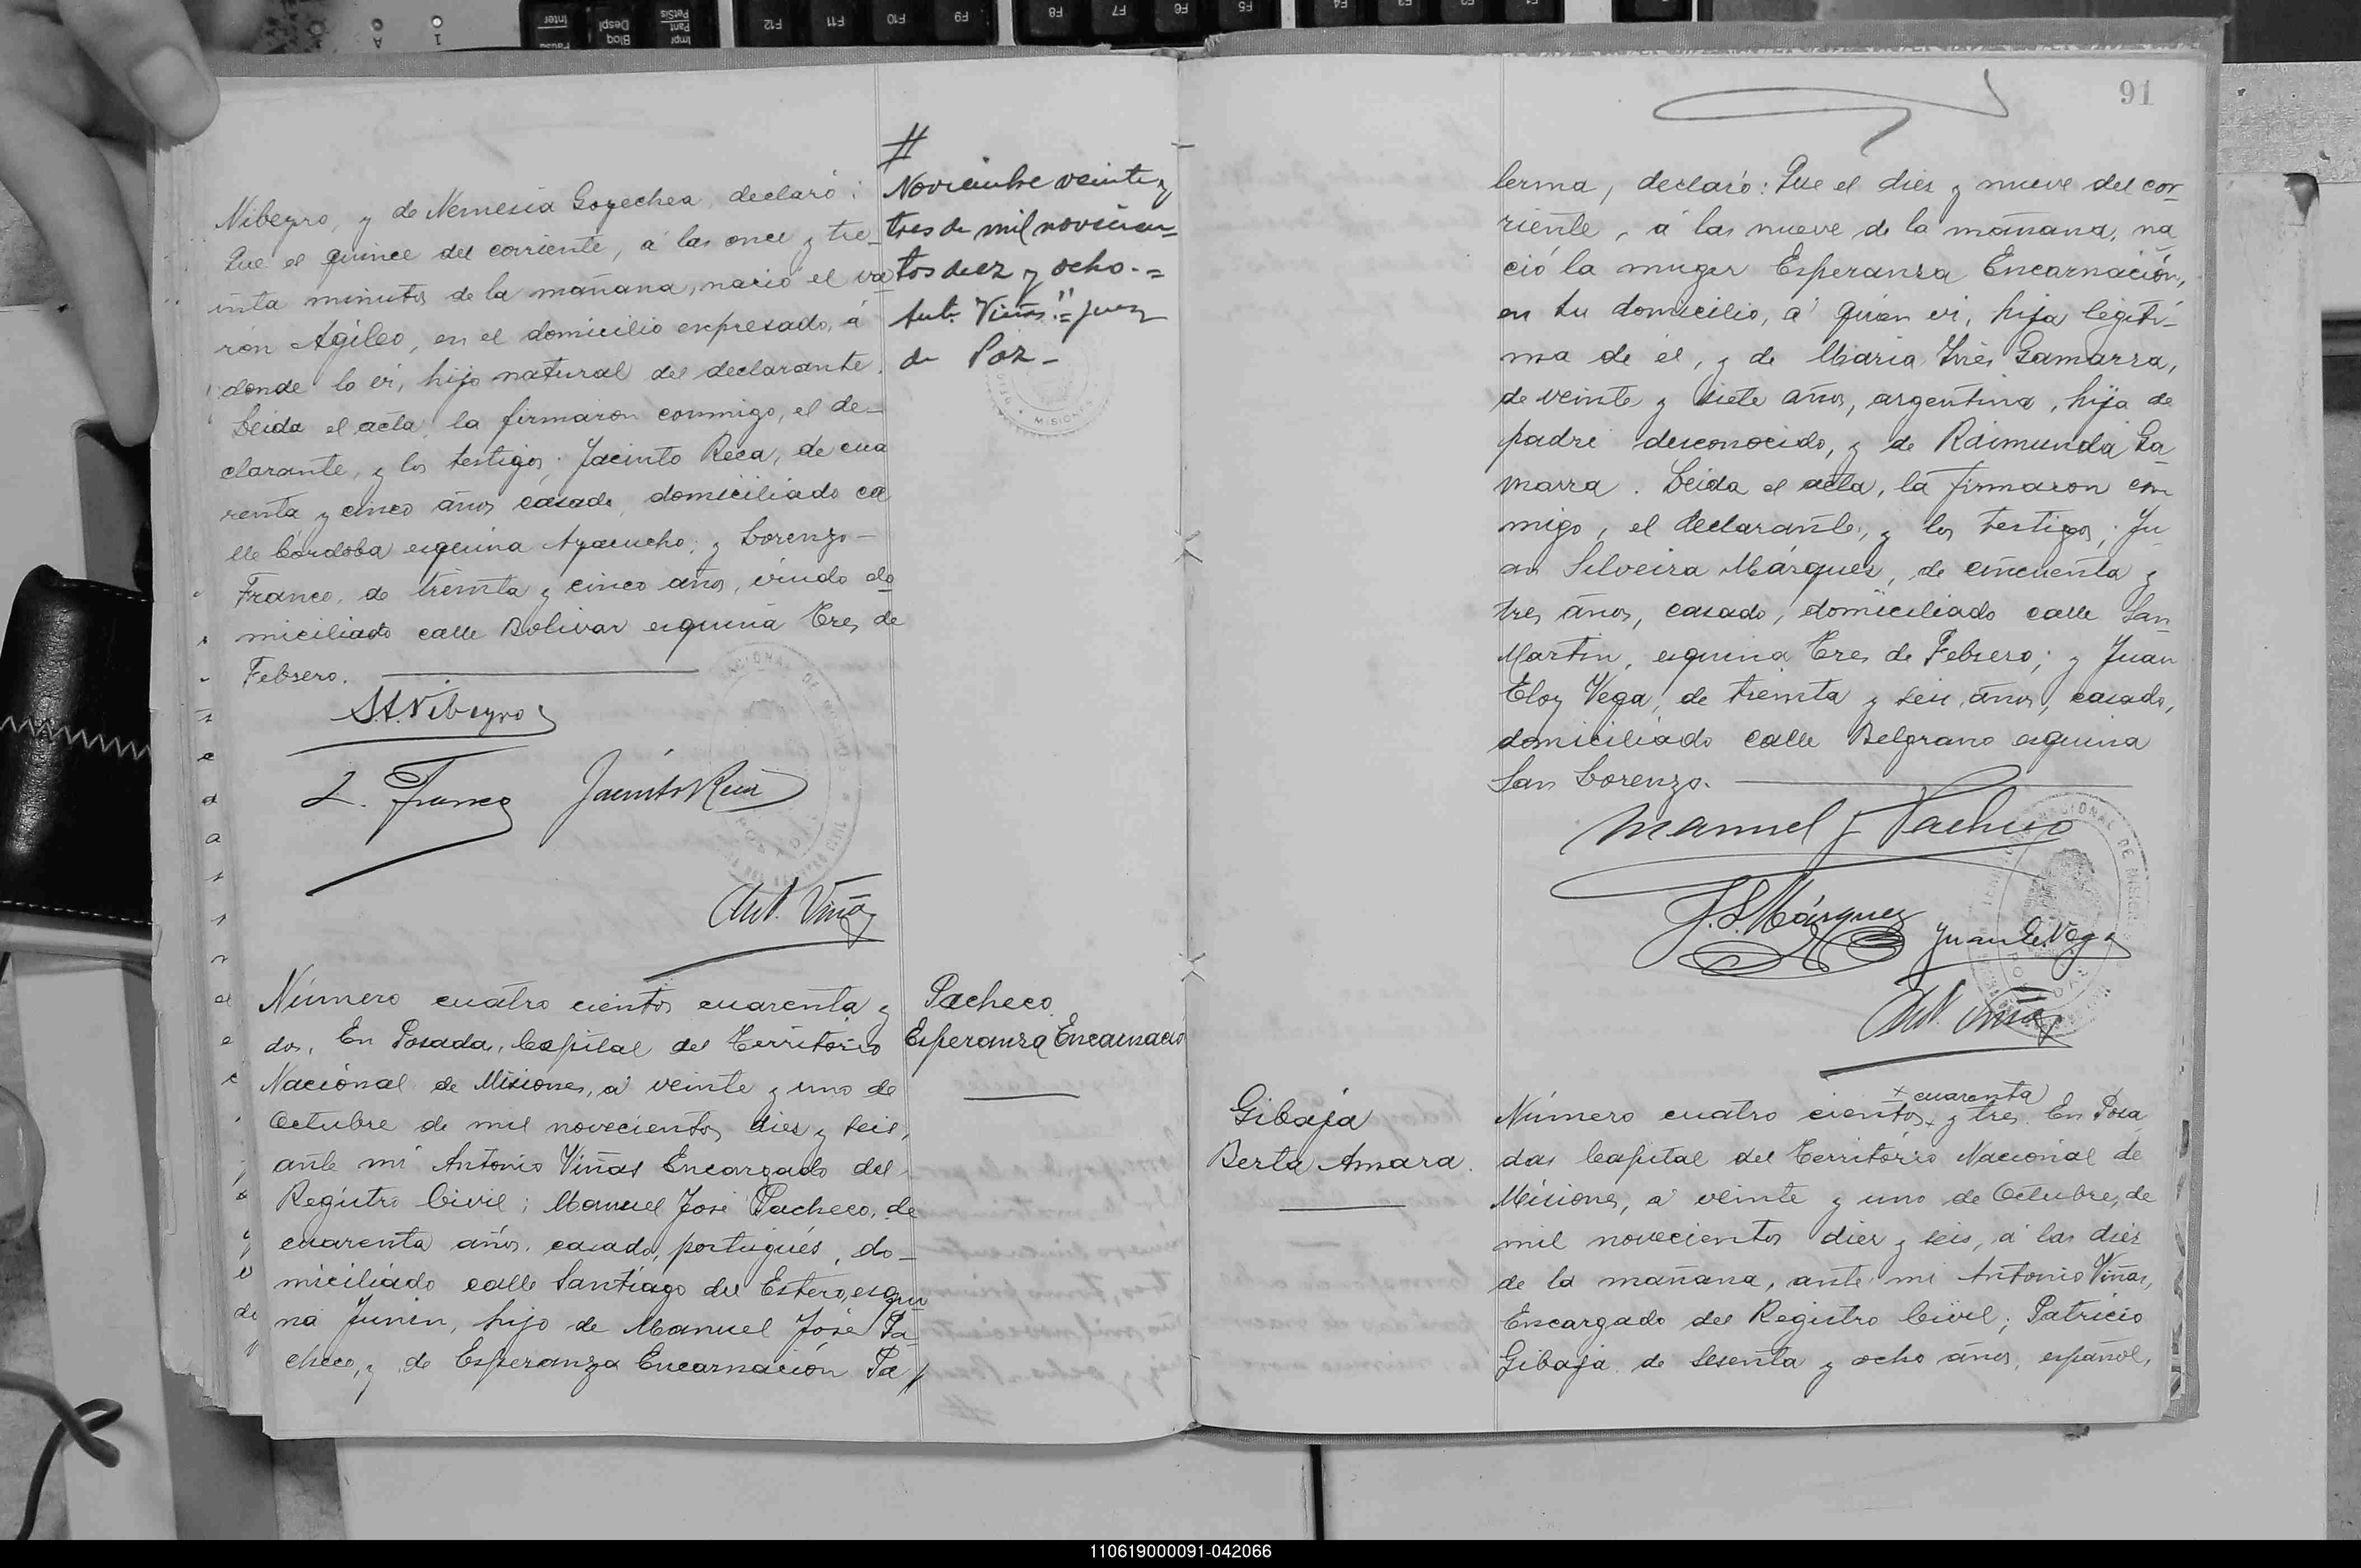 Nibeyro, y de Nemesia Goyechea, declaró:
Que el quince del corriente, á las once y tre-
inta minutos de la mañana, nació el va
rón Agileo, en el domicilio expresado, á
donde lo ví, hijo natural del declarante.
Leida el acta, la firmaron conmigo, el de-
clarante, y los testigos; Jacinto Reca, de cua
renta y cinco años casado, domiciliado ca
lle Córdoba esquina Ayacucho; y Lorenzo-
Franco, de treinta y cinco años, viudo do
miciliado calle Bolivar esquina Tres de
Febrero.
S.A. Nibeyro
L. Franco Jacinto Reca
Ant. Viñas
#
Noviembre veinte y
tres de mil novecien=
tos diez y ocho.=
Ant. Viñas "= Juez
de Paz -
MISIONES
Número cuatro cientos cuarenta y
dos. En Posadas, Capital del Territorio
Nacional de Misiones, á veinte y uno de
Octubre de mil novecientos diez y seis,
ante mí Antonio Viñas Encargado del
Registro Civil; Manuel José Pacheco, de
cuarenta años, casado, portugués, do-
miciliado calle Santiago del Estero, esqui
na Junin, hijo de Manuel José Pa-
checo, y de Esperanza Encarnación Pa//
Pacheco
Esperanza Encarnació
91
lerma, declaró: Que el diez y nueve del cor-
riente, á las nueve de la mañana, na
ció la muger Esperanza Encarnación,
en su domicilio, á quien ví, hija legíti-
ma de él, y de Maria Inés Gamarra,
de veinte y siete años, argentina, hija de
padre desconocido, y de Raimunda Ga-
marra. Leida el acta, la firmaron con
migo, el declarante, y los testigos; Ju-
an Silveira Márquez, de cincuenta y
tres años, casado, domiciliado calle San
Martin, esquina Tres de Febrero; y Juan
Eloy Vega, de treinta y seis años, casado,
domiciliado calle Belgrano esquina
San Lorenzo.
Manuel J Pacheco
J.S. Márquez Juan E. Vega
Ant. Viñas
Gibaja
Berta Amara.
+ cuarenta
Número cuatro cientos + y tres. En Posa
das Capital del Territorio Nacional de
Misiones, á veinte y uno de Octubre, de
mil novecientos diez y seis, á las diez
de la mañana, ante mí Antonio Viñas,
Encargado del Registro Civil; Patricio
Gibaja de sesenta y ocho años, español,
110619000091-042066